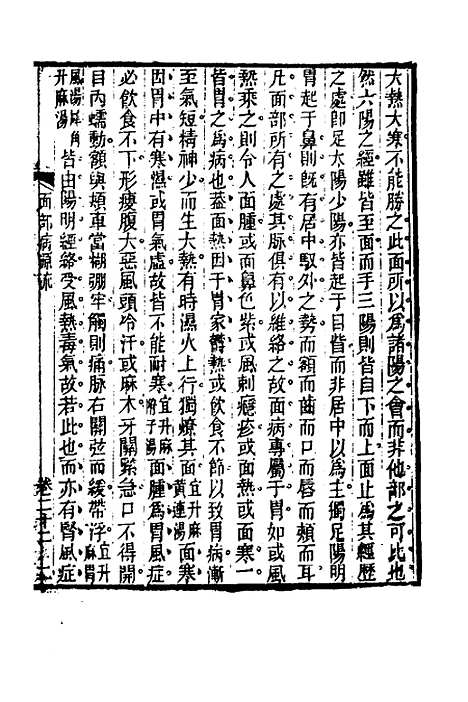 大熱大寒不能勝之此面所以為諸陽之會而非他部之可比也
然六陽之經雖皆至面而手三陽則皆自下而上面止為其經歷
之處即足太陽少陽亦皆起于目眥而非居中以為主獨足陽明
胃起于鼻則既有居中馭外之勢而額而齒而口而唇而頰而耳
凡面部所有之處其脉俱有以維絡之故面病專屬于胃如或風
熱乘之則令人面腫或面鼻色紫或風刺癮疹或面熱或面寒一
皆胃之為病也蓋面熱因于胃家鬱熱或飲食不節以致胃病漸
至氣短精神少而生大熱有時濕火上行獨燎其面宜升麻黃連湯面寒
因胃中有寒濕或胃氣虛故皆不能耐寒宜升麻附子湯面腫為胃風症
必飲食不下形瘦腹大惡風頭冷汗或麻木牙關緊急口不得開
目內蠕動額與頰車當
牢觸則痛脉右關弦而緩帶浮宜升麻胃
風湯犀角升麻湯皆由陽明經絡受風熱毒氣故若此也而亦有腎風症
面部病源流
卷二十